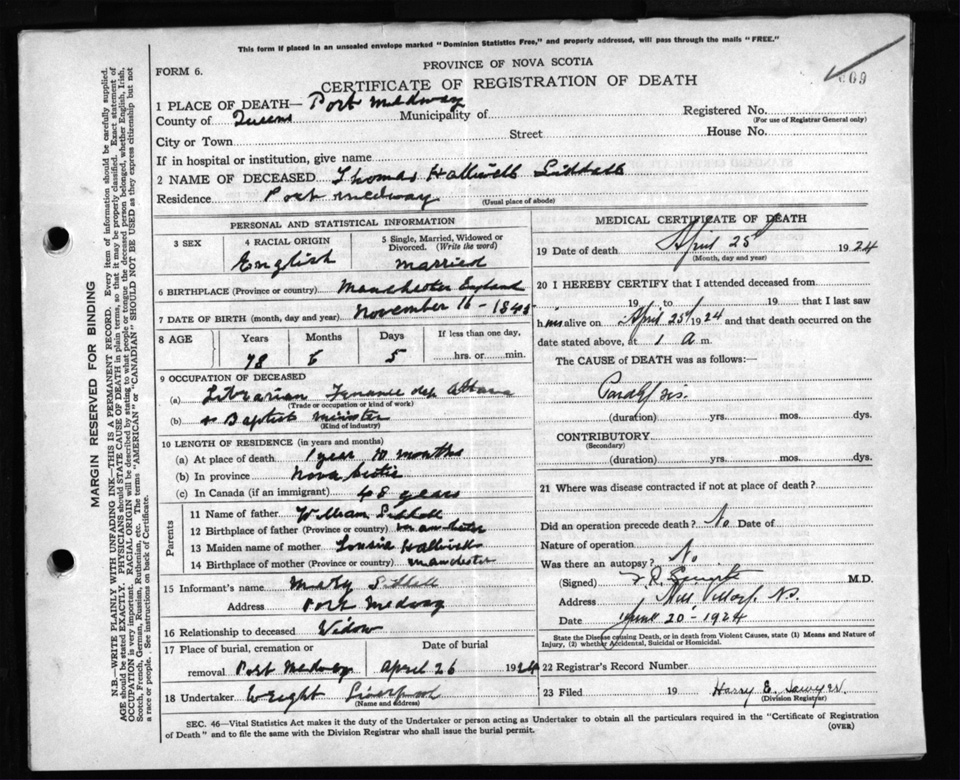 This form if placed in an unsealed envelope marked "Dominion Statistics Free," and properly addressed, will pass through the mails "FREE."
PROVINCE OF NOVA SCOTIA
FORM 6.
CERTIFICATE OF REGISTRATION OF DEATH
1 PLACE OF DEATH— Port Medway
County of Queens Municipality of Registered No.
(For use of Registrar General only)
City or Town Street House No.
If in hospital or institution, give name
2 NAME OF DECEASED Thomas Halliwell Siddall
Residence Port Medway
(Usual place of abode)
PERSONAL AND STATISTICAL INFORMATION
3 SEX
4 RACIAL ORIGIN
English
5 Single, Married, Widowed or Divorced. (Write the word)
married
6 BIRTHPLACE (Province or country) Manchester England
7 DATE OF BIRTH (month, day and year) November 16 - 1845
8 AGE Years Months Days If less than one day,
78 5 hrs. or min.
9 OCCUPATION OF DECEASED
(a) Librarian
(Trade or occupation or kind of work)
(b) Baptist minister
(Kind of industry)
10 LENGTH OF RESIDENCE (in years and months)
(a) At place of death 1 year 10 months
(b) In province Nova Scotia
(c) In Canada (if an immigrant) 48 years
Parents
11 Name of father William Siddall
12 Birthplace of father (Province or country) Manchester
13 Maiden name of mother Lousia Halliwell
14 Birthplace of mother (Province or country) Manchester
15 Informant's name Mary Siddall
Address Port Medway
16 Relationship to deceased Widow
17 Place of burial, cremation or removal Port Medway
Date of burial
April 26 1924
18 Undertaker Wright Liverpool
(Name and address)
MEDICAL CERTIFICATE OF DEATH
19 Date of death April 25th 1924
(Month, day and year)
20 I HEREBY CERTIFY that I attended deceased from
19 to 19 that I last saw
h im alive on April 25th 1924 and that death occurred on the
date stated above, at 1 a.m.
The CAUSE of DEATH was as follows:
Paralysis.
(duration) yrs. mos. dys.
CONTRIBUTORY
(Secondary)
(duration) yrs. mos. dys.
21 Where was disease contracted if not at place of death?
Did an operation precede death? No Date of
Nature of operation
Was there an autopsy? No
(Signed) M.D.
Address Mill Village N.S.
Date June 20 - 1924
State the Disease causing Death, or in death from Violent Causes, state (1) Means and Nature of
Injury, (2) whether Accidental, Suicidal or Homicidal.
22 Registrar's Record Number
23 Filed 19 Harry E. Sawyer.
(Division Registrar)
SEC. 46—Vital Statistics Act makes it the duty of the Undertaker or person acting as Undertaker to obtain all the particulars required in the "Certificate of Registration
of Death" and to file the same with the Division Registrar who shall issue the burial permit.
(OVER)
MARGIN RESERVED FOR BINDING
N.B.—WRITE PLAINLY WITH UNFADING INK—THIS IS A PERMANENT RECORD. Every item of information should be carefully supplied.
AGE should be stated EXACTLY. PHYSICIANS should STATE CAUSE OF DEATH in plain terms, so that it may be properly classified. Exact statement of
OCCUPATION is very important. RACIAL ORIGIN will be described by stating to what people or tongue the deceased person belonged, whether English, Irish,
Scotch, French, German, Russian, Ruthenian, etc. The terms "AMERICAN" or "CANADIAN" SHOULD NOT BE USED as they express citizenship but not
a race or people. See instructions on back of Certificate.